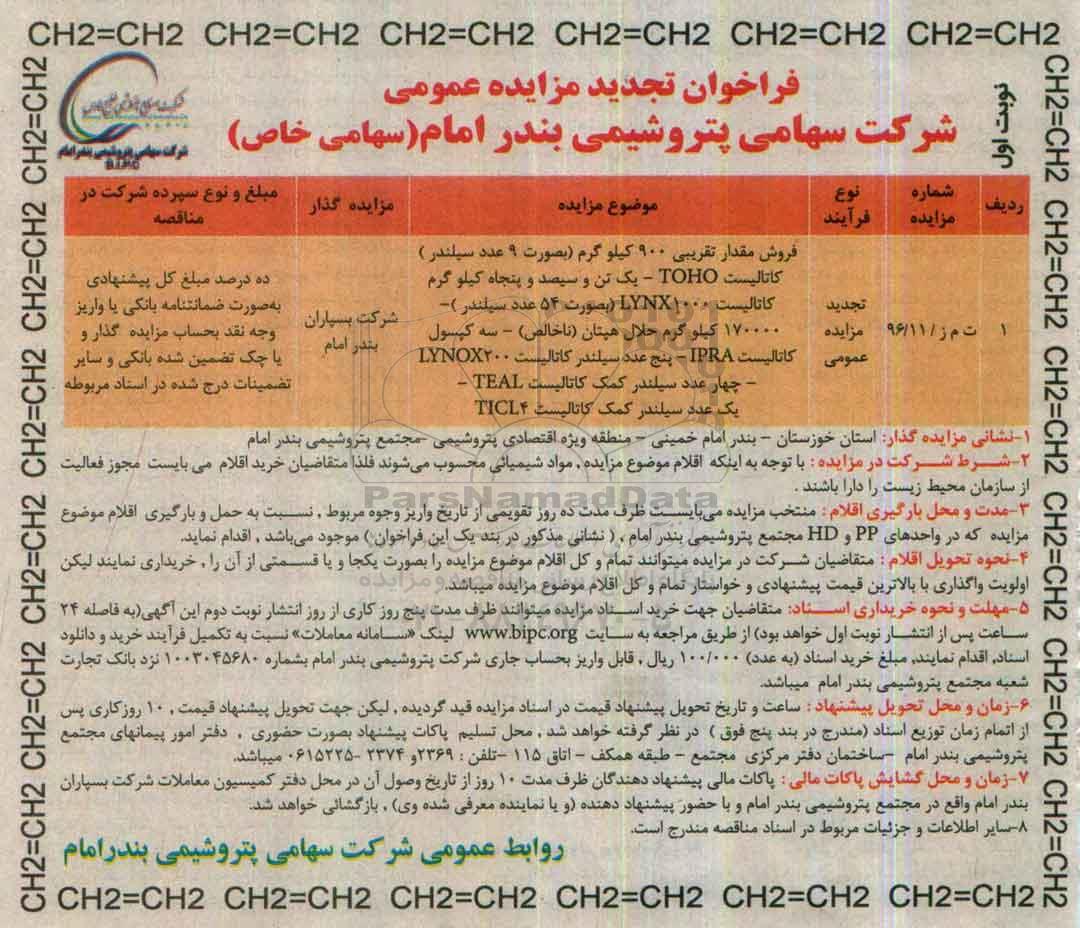 CH2=CH2 CH2=CH2 CH2=CH2 CH2=CH2 CH2=CH2 CH2=CH2
CH2=CH2 CH2=CH2 CH2=CH2 CH2=CH2 CH2=CH2 CH2=CH2
نوبت اول
فراخوان تجدید مزایده عمومی
شرکت سهامی پتروشیمی بندر امام(سهامی خاص)
شرکت سهامی پتروشیمی بندرامام
B.I.P.C
ردیف
شماره مزایده
نوع فرآیند
موضوع مزایده
مزایده گذار
مبلغ و نوع سپرده شرکت در مناقصه
۱
ت م ز / ۹۶/۱۱
تجدید
مزایده
عمومی
فروش مقدار تقریبی ۹۰۰ کیلو گرم (بصورت ۹ عدد سیلندر )
کاتالیست TOHO – یک تن و سیصد و پنجاه کیلو گرم
کاتالیست LYNX۱۰۰۰ (بصورت ۵۴ عدد سیلندر )–
۱۷۰۰۰۰ کیلو گرم حلال هپتان (ناخالص) – سه کپسول
کاتالیست IPRA – پنج عدد سیلندر کاتالیست LYNOX۲۰۰
– چهار عدد سیلندر کمک کاتالیست TEAL –
یک عدد سیلندر کمک کاتالیست TICL۴
شرکت بسپاران
بندر امام
ده درصد مبلغ کل پیشنهادی
به‌صورت ضمانتنامه بانکی یا واریز
وجه نقد بحساب مزایده گذار و
یا چک تضمین شده بانکی و سایر
تضمینات درج شده در اسناد مربوطه
۱-نشانی مزایده گذار: استان خوزستان – بندر امام خمینی – منطقه ویژه اقتصادی پتروشیمی -مجتمع پتروشیمی بندر امام
۲-شرط شرکت در مزایده : با توجه به اینکه اقلام موضوع مزایده , مواد شیمیائی محسوب می‌شوند فلذا متقاضیان خرید اقلام می بایست مجوز فعالیت
از سازمان محیط زیست را دارا باشند .
۳-مدت و محل بارگیری اقلام : منتخب مزایده می‌بایست ظرف مدت ده روز تقویمی از تاریخ واریز وجوه مربوط , نسبت به حمل و بارگیری اقلام موضوع
مزایده که در واحدهای PP و HD مجتمع پتروشیمی بندر امام , ( نشانی مذکور در بند یک این فراخوان ) موجود می‌باشد , اقدام نماید.
۴-نحوه تحویل اقلام : متقاضیان شرکت در مزایده میتوانند تمام و کل اقلام موضوع مزایده را بصورت یکجا و یا قسمتی از آن را , خریداری نمایند لیکن
اولویت واگذاری با بالاترین قیمت پیشنهادی و خواستار تمام و کل اقلام موضوع مزایده میباشد.
۵-مهلت و نحوه خریداری اسناد: متقاضیان جهت خرید اسناد مزایده میتوانند ظرف مدت پنج روز کاری از روز انتشار نوبت دوم این آگهی(به فاصله ۲۴
ساعت پس از انتشار نوبت اول خواهد بود) از طریق مراجعه به سایت www.bipc.org لینک «سامانه معاملات» نسبت به تکمیل فرآیند خرید و دانلود
اسناد, اقدام نمایند, مبلغ خرید اسناد (به عدد) ۱۰۰/۰۰۰ ریال , قابل واریز بحساب جاری شرکت پتروشیمی بندر امام بشماره ۱۰۰۳۰۴۵۶۸۰ نزد بانک تجارت
شعبه مجتمع پتروشیمی بندر امام میباشد.
۶-زمان و محل تحویل پیشنهاد : ساعت و تاریخ تحویل پیشنهاد قیمت در اسناد مزایده قید گردیده , لیکن جهت تحویل پیشنهاد قیمت , ۱۰ روزکاری پس
از اتمام زمان توزیع اسناد (مندرج در بند پنج فوق ) در نظر گرفته خواهد شد , محل تسلیم پاکات پیشنهاد بصورت حضوری , دفتر امور پیمانهای مجتمع
پتروشیمی بندر امام –ساختمان دفتر مرکزی مجتمع – طبقه همکف – اتاق ۱۱۵ -تلفن : ۲۳۶۹و ۲۳۷۴ -۰۶۱۵۲۲۵ میباشد.
۷-زمان و محل گشایش پاکات مالی : پاکات مالی پیشنهاد دهندگان ظرف مدت ۱۰ روز از تاریخ وصول آن در محل دفتر کمیسیون معاملات شرکت بسپاران
بندر امام واقع در مجتمع پتروشیمی بندر امام و با حضور پیشنهاد دهنده (و یا نماینده معرفی شده وی) , بازگشائی خواهد شد.
۸-سایر اطلاعات و جزئیات مربوط در اسناد مناقصه مندرج است.
روابط عمومی شرکت سهامی پتروشیمی بندرامام
ParsNamadData
CH2=CH2 CH2=CH2 CH2=CH2 CH2=CH2 CH2=CH2 CH2=CH2
CH2=CH2 CH2=CH2 CH2=CH2 CH2=CH2 CH2=CH2 CH2=CH2